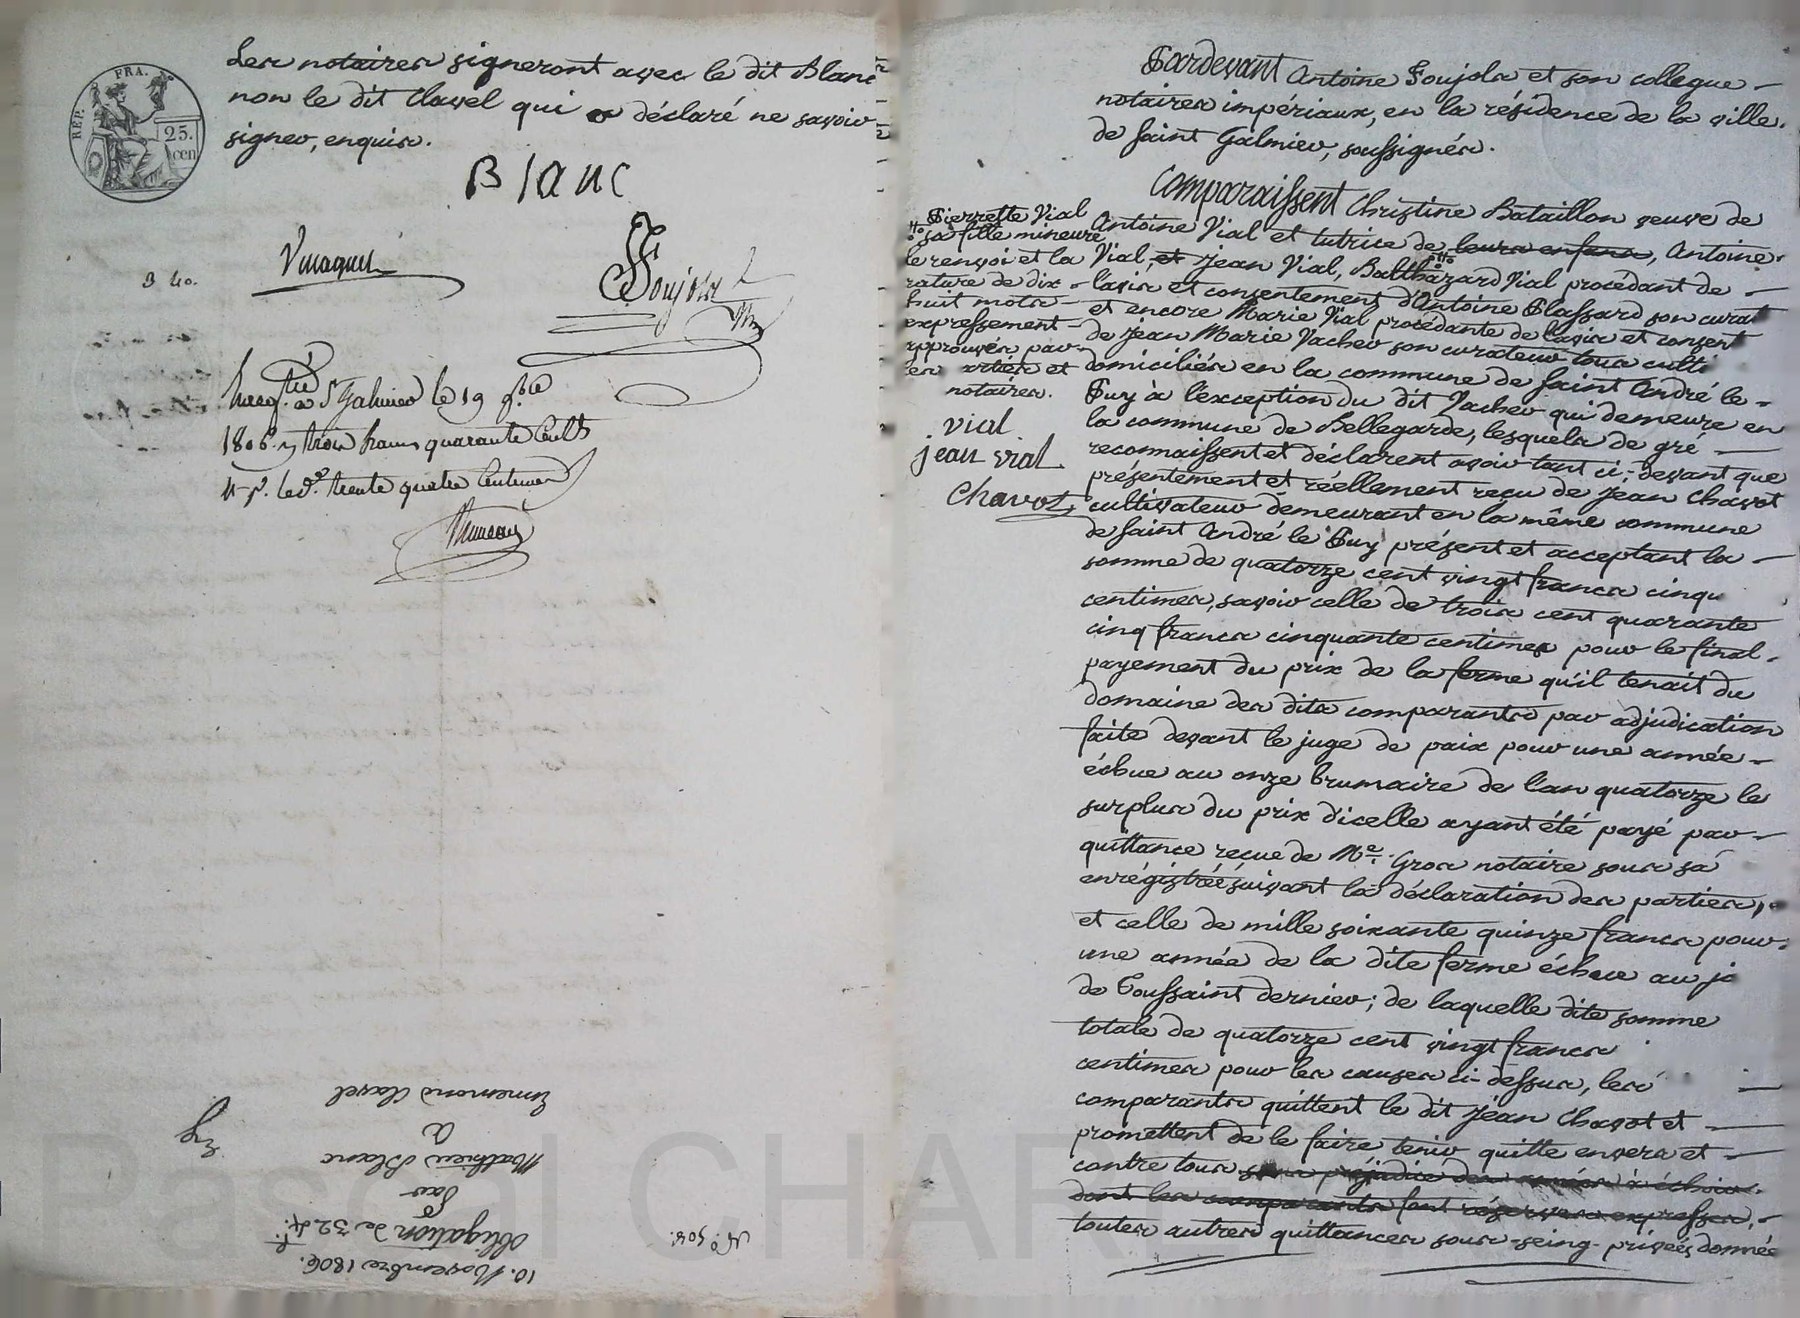 RÉP. FRA.
25.
cen
Les notaires signeront avec le dit Blanc
non le dit Clavel qui a déclaré ne savoir
signer, enquis.
Blanc
B 40.
Foujols
à St Galmier le 19 9bre
1806. trois francs quarante
trente quatre centimes
Ennemond Clavel
à
Mathieu Blanc
par
obligation de 324 f.
10. Novembre 1806.
Pardevant Antoine Foujols et son collegue
notaires impériaux, en la résidence de la ville
de Saint Galmier, soussignés.
Comparaissent Christine Bataillon veuve de
Antoine Vial et tutrice de leurs enfans, Antoine
Vial, et Jean Vial, Balthazard Vial procédant de
l'avis et consentement d'Antoine Plassard son curat
et encore Marie Vial procédante de l'avis et consent
de Jean Marie Vacher son curateur tous culti
domiciliés en la commune de Saint André le
Puy à l'exception du dit Vacher qui demeure en
la commune de Bellegarde, lesquels de gré
reconnaissent et déclarent avoir tant ci-devant que
présentement et réellement reçu de Jean Chavot
cultivateur demeurant en la même commune
de Saint André le Puy présent et acceptant la
somme de quatorze cent vingt francs cinqu
centimes, savoir celle de trois cent quarante
cinq francs cinquante centimes pour le final
payement du prix de la ferme qu'il tenait du
domaine des dits comparants par adjudication
faite devant le juge de paix pour une année
échue au onze brumaire de l'an quatorze le
surplus du prix d'icelle ayant été payé par
quittance reçue de Me. Gros notaire sous sa
enrégistrée suivant la déclaration des parties,
et celle de mille soixante quinze francs pour
une année de la dite ferme échue au jo
de Toussaint dernier; de laquelle dite somme
totale de quatorze cent vingt francs
centimes pour les causes ci-dessus, les
comparants quittent le dit Jean Chavot et
promettent de le faire tenir quitte envers et
contre tous sans préjudice des années à échoir
dont les comparants font réserves expresses,
toutes autres quittances sous-seing-privées données
Pierrette Vial
sa fille mineure
le renvoi et la
rature de dix
huit mots
expressement
approuvés par
les parties et
notaires.
vial
jean vial
Chavot
Pascal CHAR